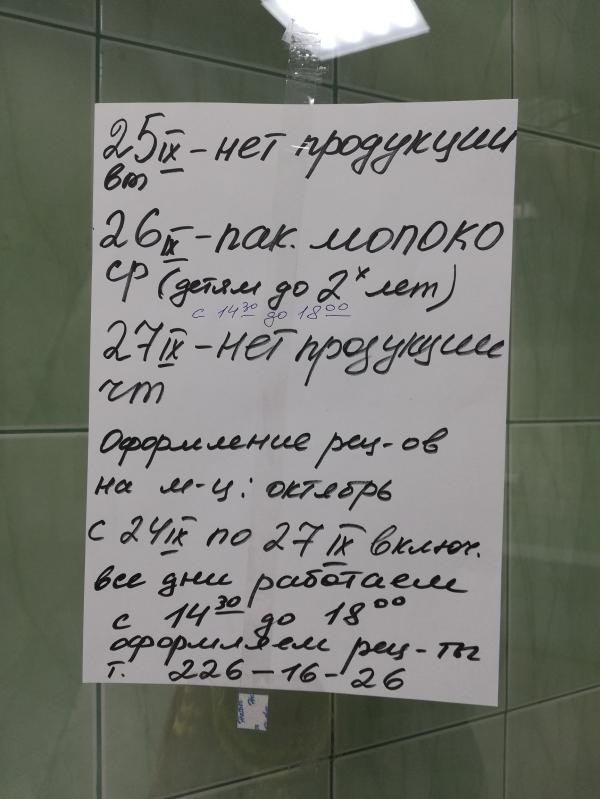 25 IX - нет продукции
вт
26 IX - пак. молоко
ср (детям до 2х лет)
с 14 30 до 18 00
27 IX - нет продукции
чт
Оформление рец-ов
на м-ц: октябрь
с 24 IX по 27 IX включ.
все дни работаем
с 14 30 до 18 00
оформляем рец-ты
т. 226-16-26